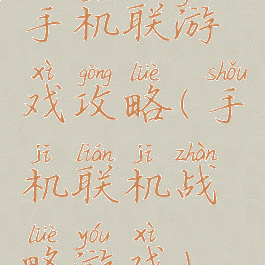 手机联游
xì gōng lüè shǒu
戏攻略(手
jī lián jī zhàn
机联机战
lüè yóu xì
略游戏)